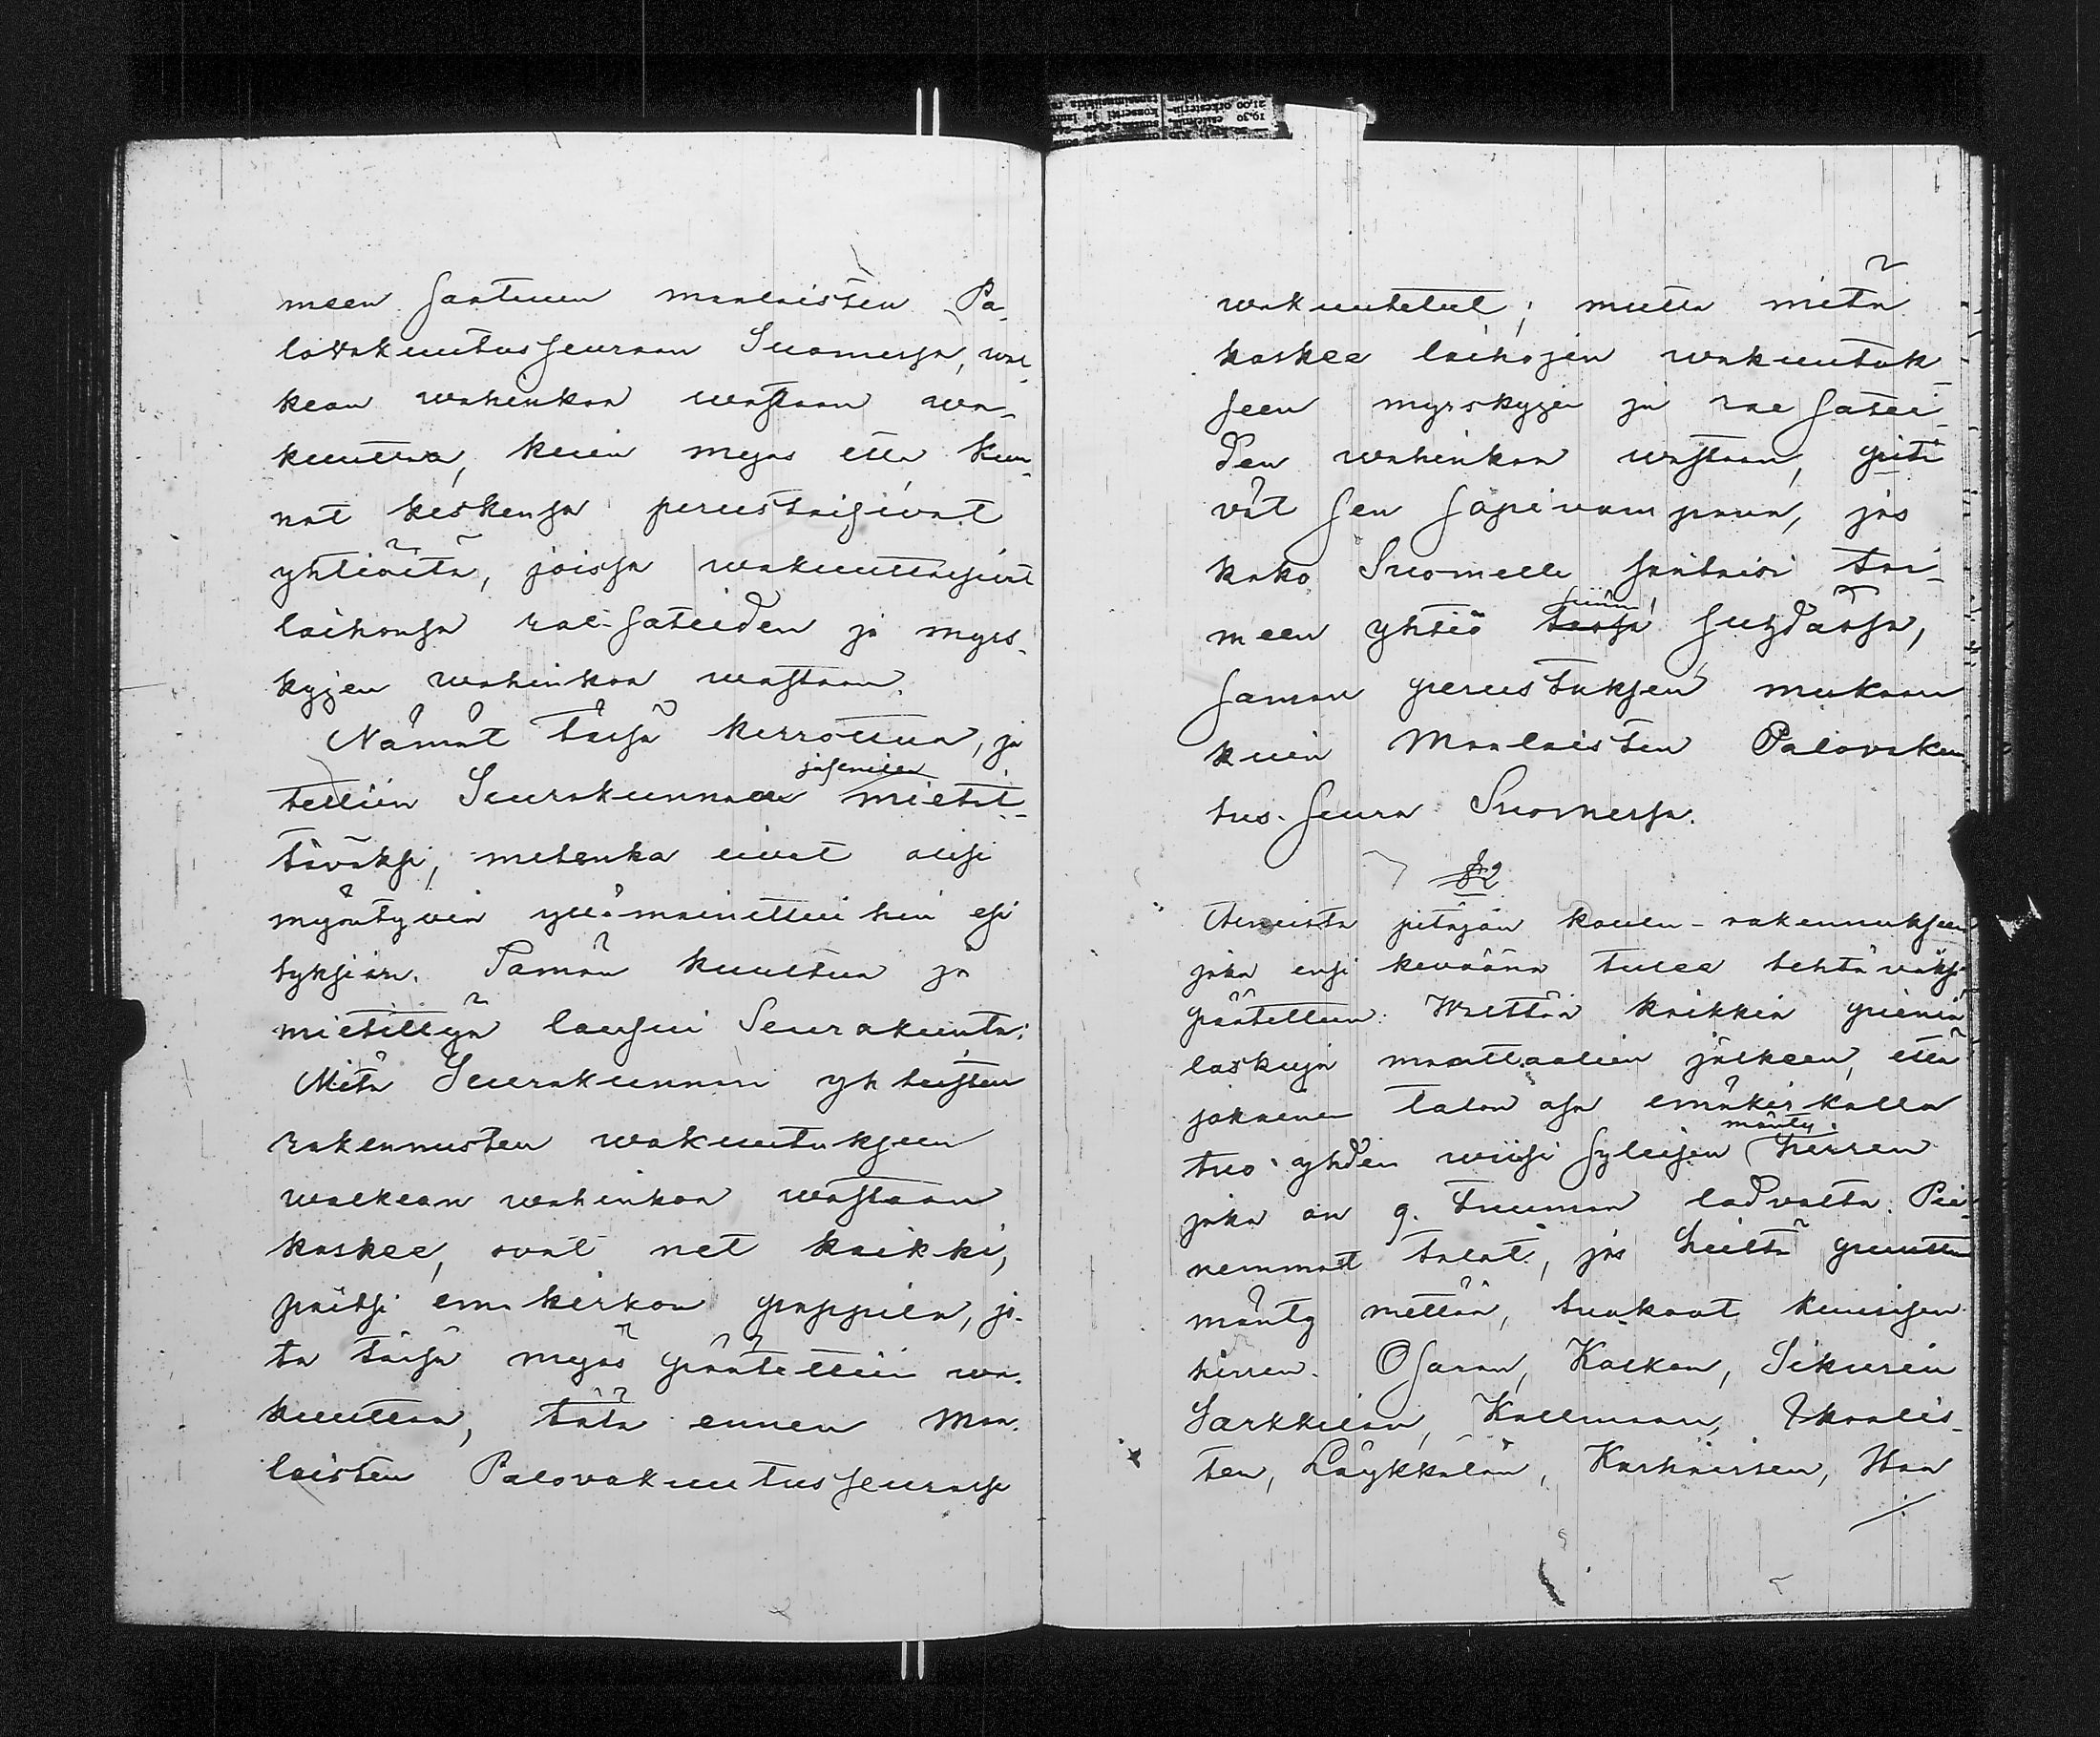 meen saatuun maalaisten Pa-
lovakuutusseuraan Suomessa, wal-
kean wahinkoa wastaan wa-
kuuttaa, kuin myös että kun-
nat keskensä perustaisivat
yhtiöitä, joissa wakuuttaisivat
laihonsa rae-sateiden ja myrs-
kyjen wahinkoa wastaan.
Nämät täsä kerrottua, jä
tettiin Seurakunnan jäsenien mietit-
täväksi, mutenka eivat olisi
myöntyvia yllämainittuihin esi
tyksiän. Tämän kuultua ja
mietittyä lausui Seurakunta:
Mitä Seurakunnan yhteisten
rakennusten wakuutukseen
walkean wahinkoa wastaan
koskee, ovat net kaikki,
paitsi emäkirkon pappila, jo-
ta täsä myös päätettiin wa-
kuuttaa, tätä ennen Maa-
laisten Palovakuutusseurassa
wakuutetut; mutta mitä
koskee laihojen wakuutuk-
seen myrskyjen ja rae satei-
den wahinkoa wastaan, piti
vät sen sopivampana, jos
koko Suomelle saataisi toi-
meen yhtiö tässä suuri suhdassa,
saman perustuksen mukaan
kuin Maalaisten Palovakuu
tus-seura Suomessa.
§2
Aineista pitäjän koulu-rakennukseen
joka ensi kevaana tulee tehtäväksi
päätettiin: Writtän kaikkia pieniä
laskuja manttaalien jälkeen, että
jokainen talon osa emäkirkolla
tuo yhden wiisi syleisen mänty hirren
joka on 9. tuuman ladvasta. Pie-
nemmät talot, jos heiltä puuttuu
mänty mettää, tuokoot kuusisen
hirren. Osaran, Kalkon, Sikurin
Särkkilän, Kallmaan, Ikaalis-
ten, Läykkälän, Karhoisen, Haa
./.